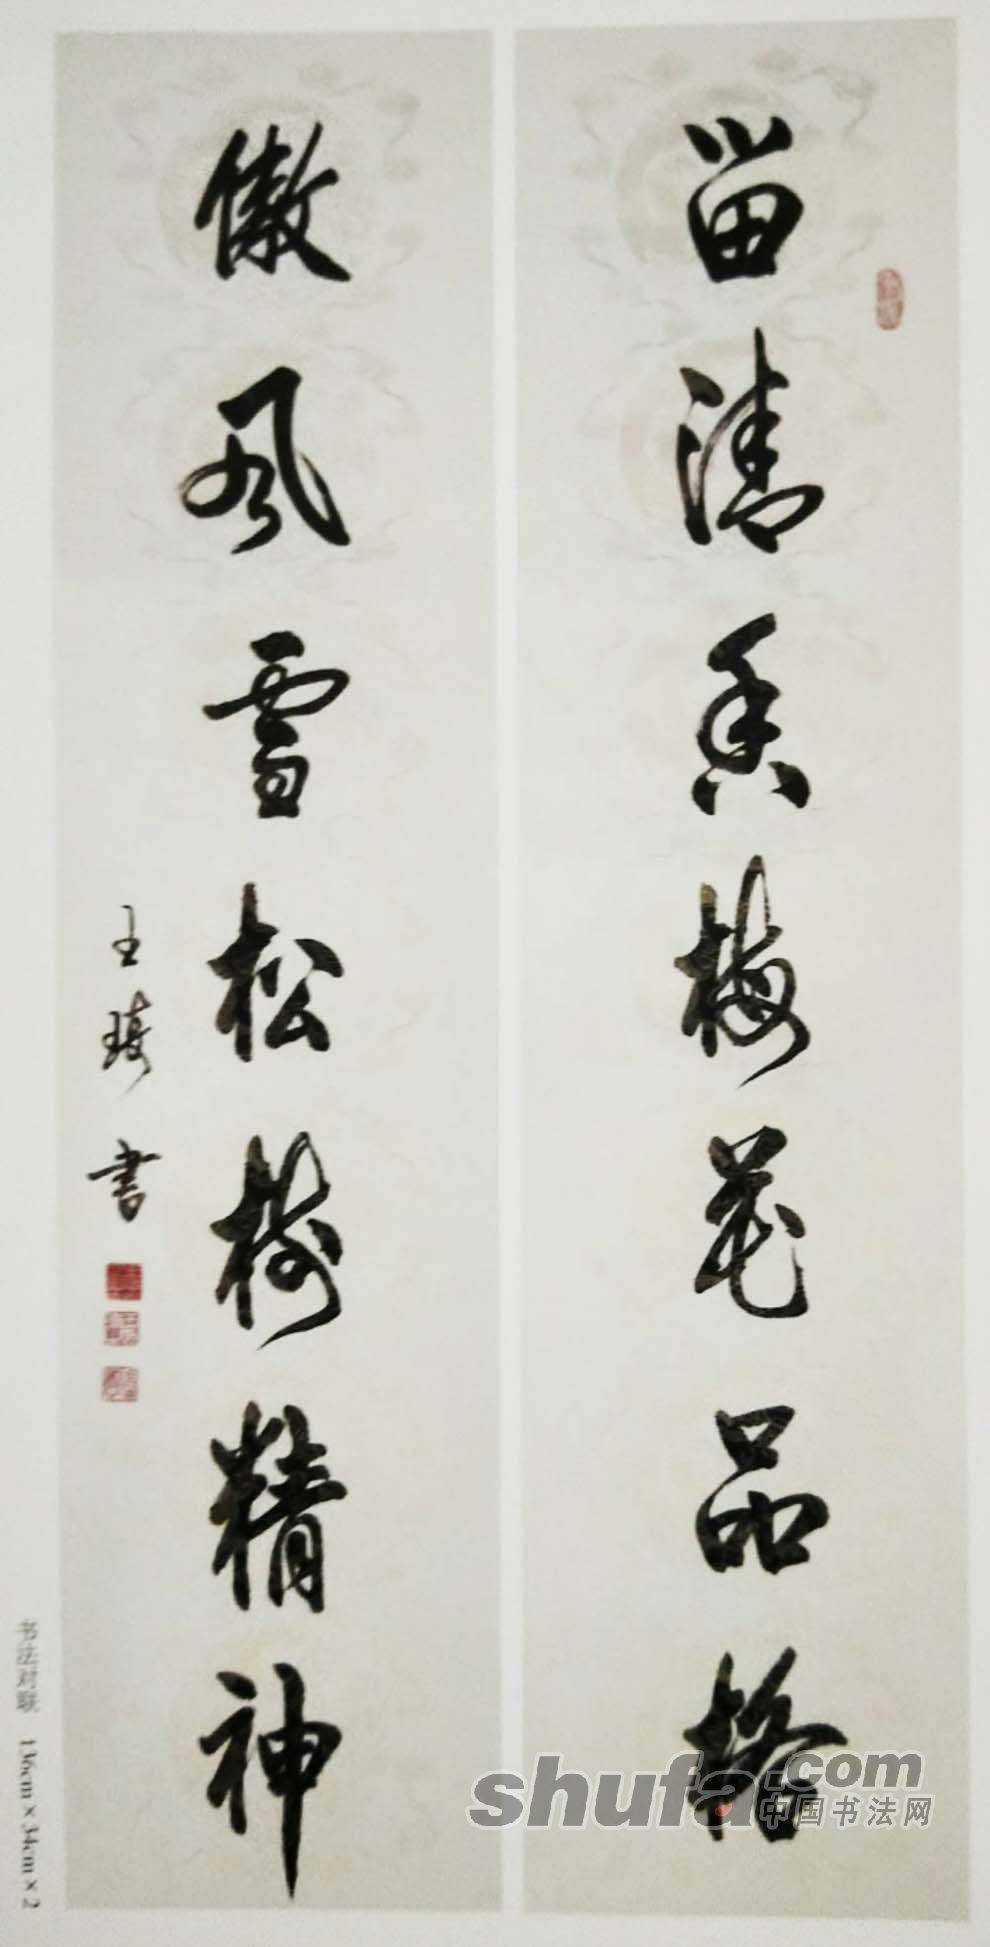 留清香梅花品格
傲风雪松树精神
王琦书
书法对联 136cm×34cm×2
shufa.com
中国书法网